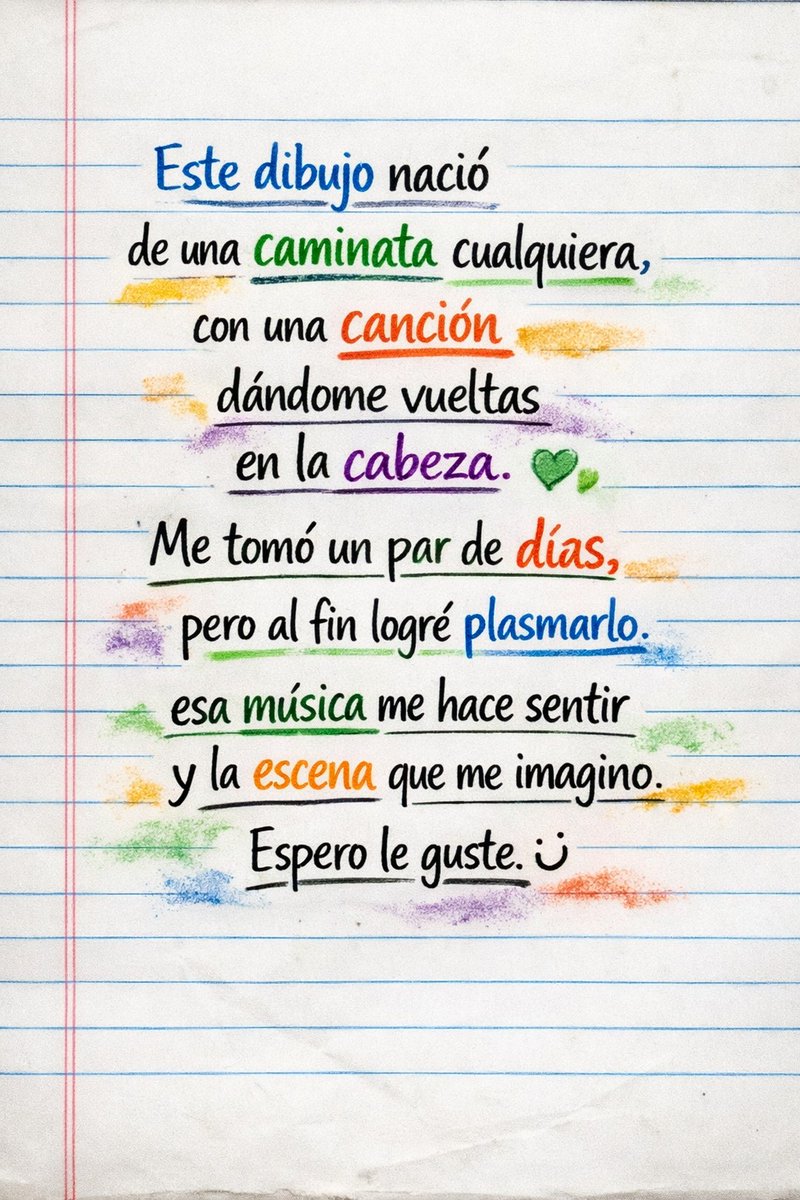 Este dibujo nació
de una caminata cualquiera,
con una canción
dándome vueltas
en la cabeza.
Me tomó un par de días,
pero al fin logré plasmarlo.
esa música me hace sentir
y la escena que me imagino.
Espero le guste.